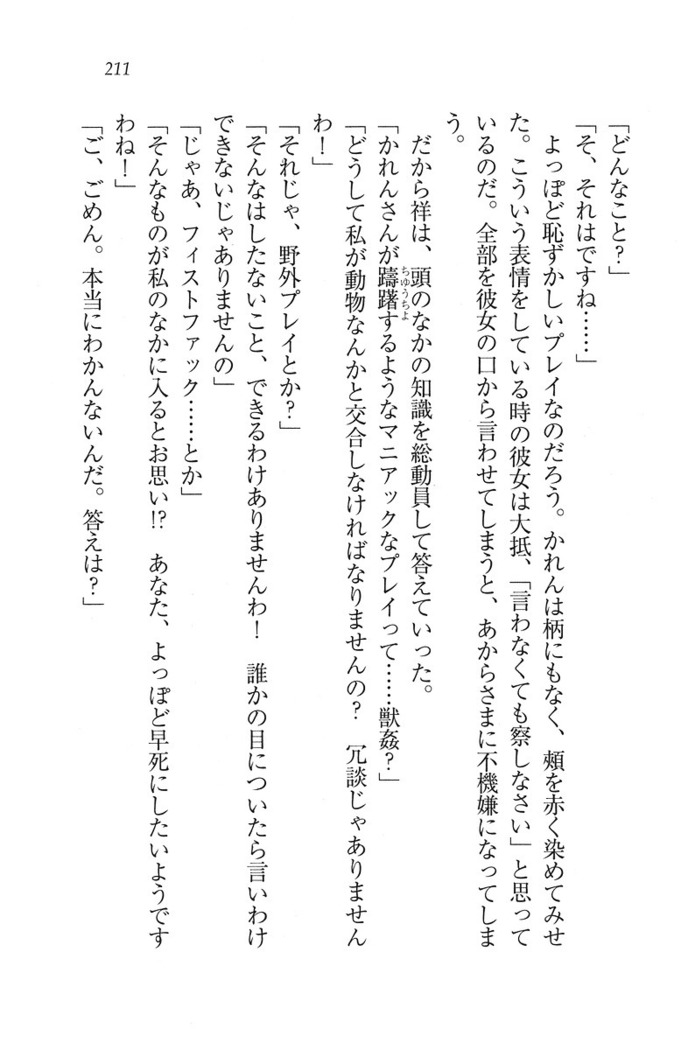 211
「どんなこと？」
「そ、それはですね……」
　よっぽど恥ずかしいプレイなのだろう。かれんは柄にもなく、頰を赤く染めてみせ
た。こういう表情をしている時の彼女は大抵、「言わなくても察しなさい」と思って
いるのだ。全部を彼女の口から言わせてしまうと、あからさまに不機嫌になってしま
う。
　だから祥は、頭のなかの知識を総動員して答えていった。
「かれんさんが躊躇するようなマニアックなプレイって……獣姦？」
ちゆうちよ
「どうして私が動物なんかと交合しなければなりませんの？　冗談じゃありません
わ！」
「それじゃ、野外プレイとか？」
「そんなはしたないこと、できるわけありませんわ！　誰かの目についたら言いわけ
できないじゃありませんの」
「じゃあ、フィストファック……とか」
「そんなものが私のなかに入るとお思い!?　あなた、よっぽど早死にしたいようです
わね！」
「ご、ごめん。本当にわかんないんだ。答えは？」